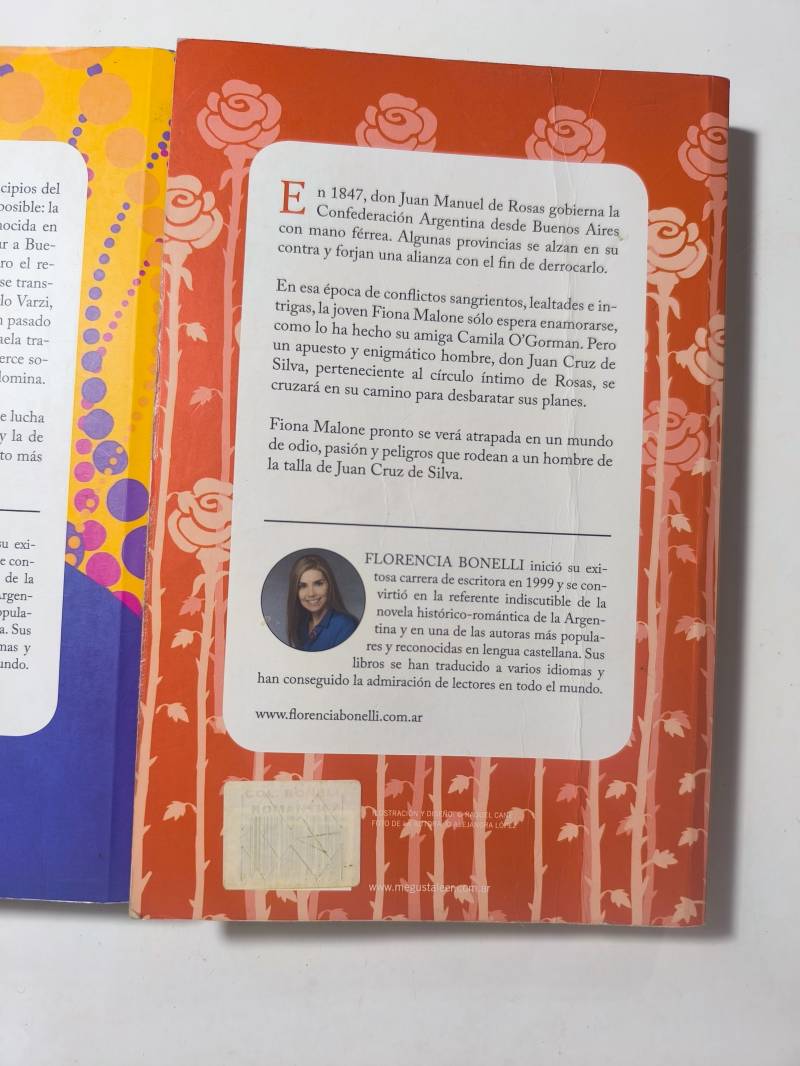 cipios del
posible: la
nocida en
ar a Bue-
ro el re-
se trans-
lo Varzi,
n pasado
aela tra-
erce so-
domina.
e lucha
y la de
to más
su exi-
e con-
de la
Argen-
opula-
a. Sus
mas y
undo.
En 1847, don Juan Manuel de Rosas gobierna la
Confederación Argentina desde Buenos Aires
con mano férrea. Algunas provincias se alzan en su
contra y forjan una alianza con el fin de derrocarlo.
En esa época de conflictos sangrientos, lealtades e in-
trigas, la joven Fiona Malone sólo espera enamorarse,
como lo ha hecho su amiga Camila O'Gorman. Pero
un apuesto y enigmático hombre, don Juan Cruz de
Silva, perteneciente al círculo íntimo de Rosas, se
cruzará en su camino para desbaratar sus planes.
Fiona Malone pronto se verá atrapada en un mundo
de odio, pasión y peligros que rodean a un hombre de
la talla de Juan Cruz de Silva.
FLORENCIA BONELLI inició su exi-
tosa carrera de escritora en 1999 y se con-
virtió en la referente indiscutible de la
novela histórico-romántica de la Argen-
tina y en una de las autoras más popula-
res y reconocidas en lengua castellana. Sus
libros se han traducido a varios idiomas y
han conseguido la admiración de lectores en todo el mundo.
www.florenciabonelli.com.ar
ILUSTRACIÓN Y DISEÑO: © RAQUEL CANÉ
FOTO DE LA AUTORA: © ALEJANDRA LÓPEZ
www.megustaleer.com.ar